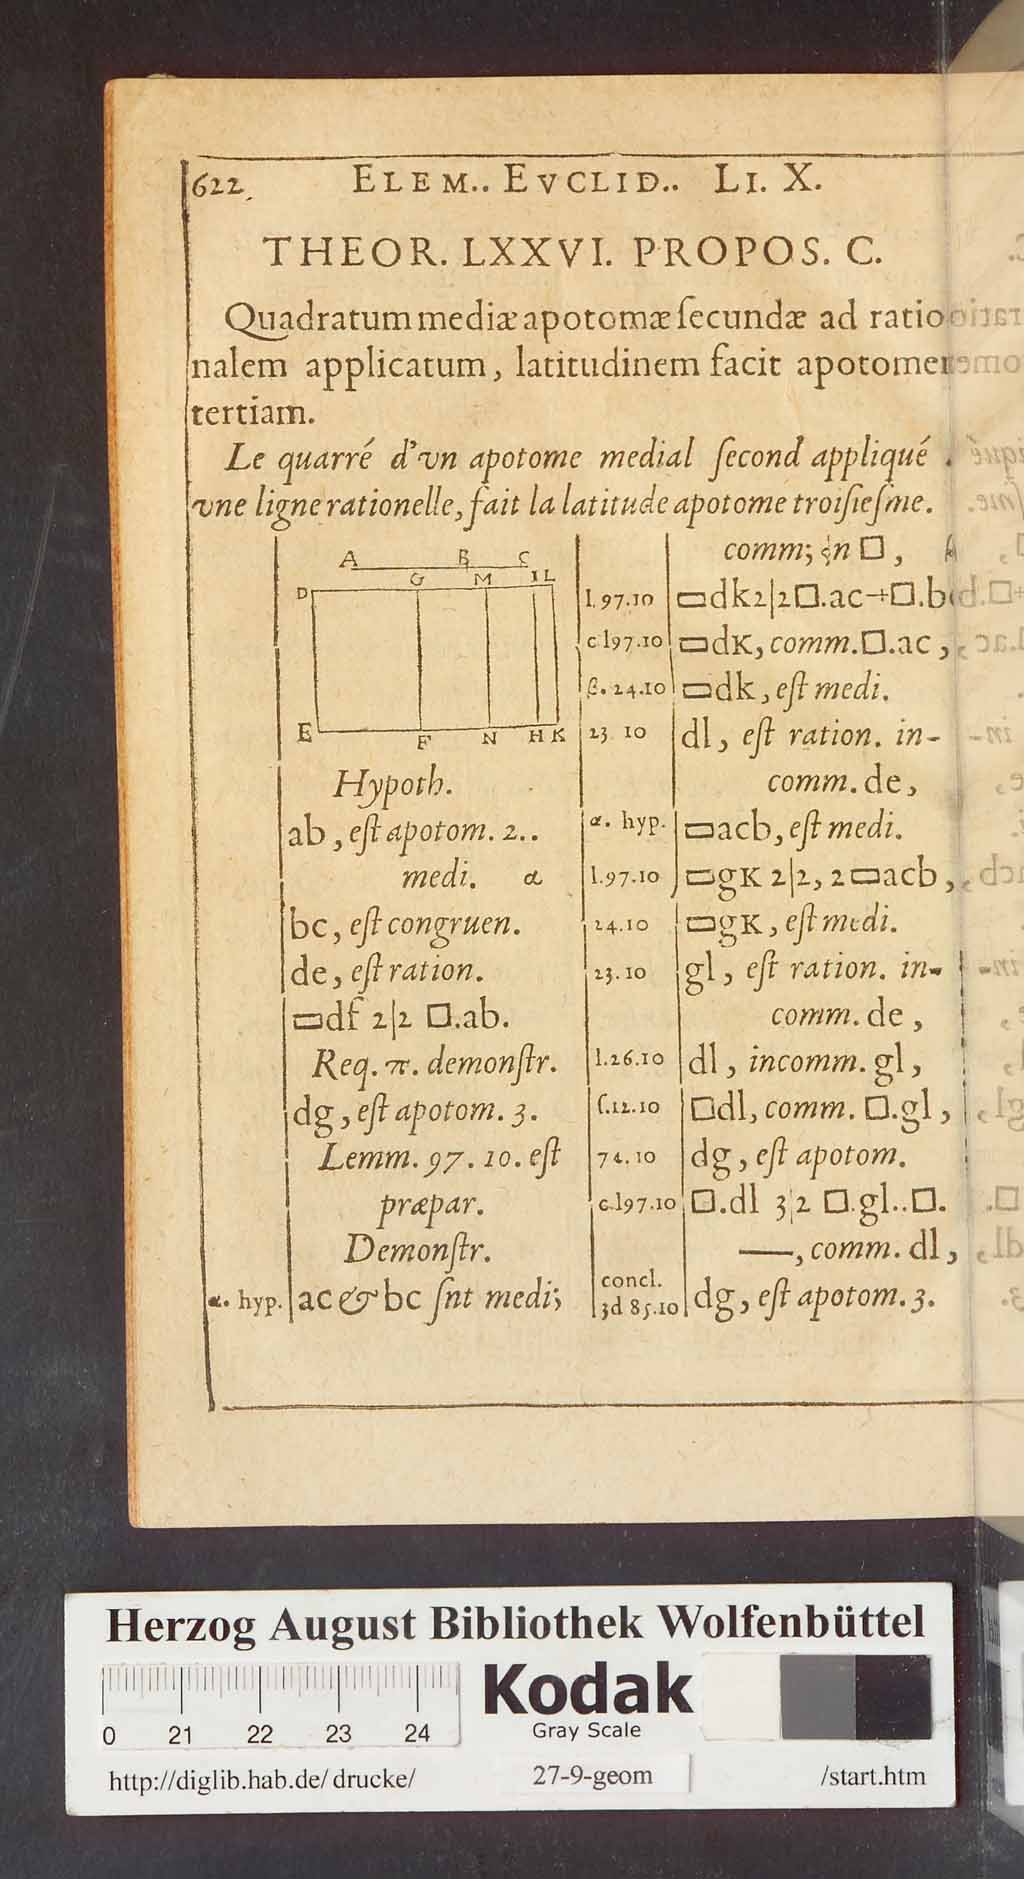 622. ELEM.. EVCLID.. LI. X.
THEOR. LXXVI. PROPOS. C.
Quadratum mediæ apotomæ ſecundæ ad ratio
nalem applicatum, latitudinem facit apotomen
tertiam.
Le quarré d'vn apotome medial ſecond appliqué
vne ligne rationelle, fait la latitude apotome troiſieſme.
A B C
G M I L
D
E F N H K
Hypoth.
ab, eſt apotom. 2..
medi. α
bc, eſt congruen.
de, eſt ration.
▭df 2|2 □.ab.
Req. π. demonſtr.
dg, eſt apotom. 3.
Lemm. 97. 10. eſt
præpar.
Demonſtr.
α. hyp. ac & bc ſnt medi;
comm; ɛn □,
l. 97.10 ▭dk 2|2 □.ac+□.bc
c. l97.10 ▭dK, comm. □.ac,
β. 24.10 ▭dk, eſt medi.
23. 10 dl, eſt ration. in-
comm. de,
α. hyp. ▭acb, eſt medi.
l.97.10 ▭gK 2|2, 2▭acb,
24.10 ▭gK, eſt medi.
23.10 gl, eſt ration. in-
comm. de,
l.26.10 dl, incomm. gl,
ſ.12.10 □dl, comm. □.gl,
74.10 dg, eſt apotom.
c.l97.10 □.dl 3|2 □.gl..□.
—, comm. dl,
concl.
3d 85.10 dg, eſt apotom. 3.
Herzog August Bibliothek Wolfenbüttel
0 21 22 23 24
Kodak
Gray Scale
http://diglib.hab.de/drucke/ 27-9-geom /start.htm